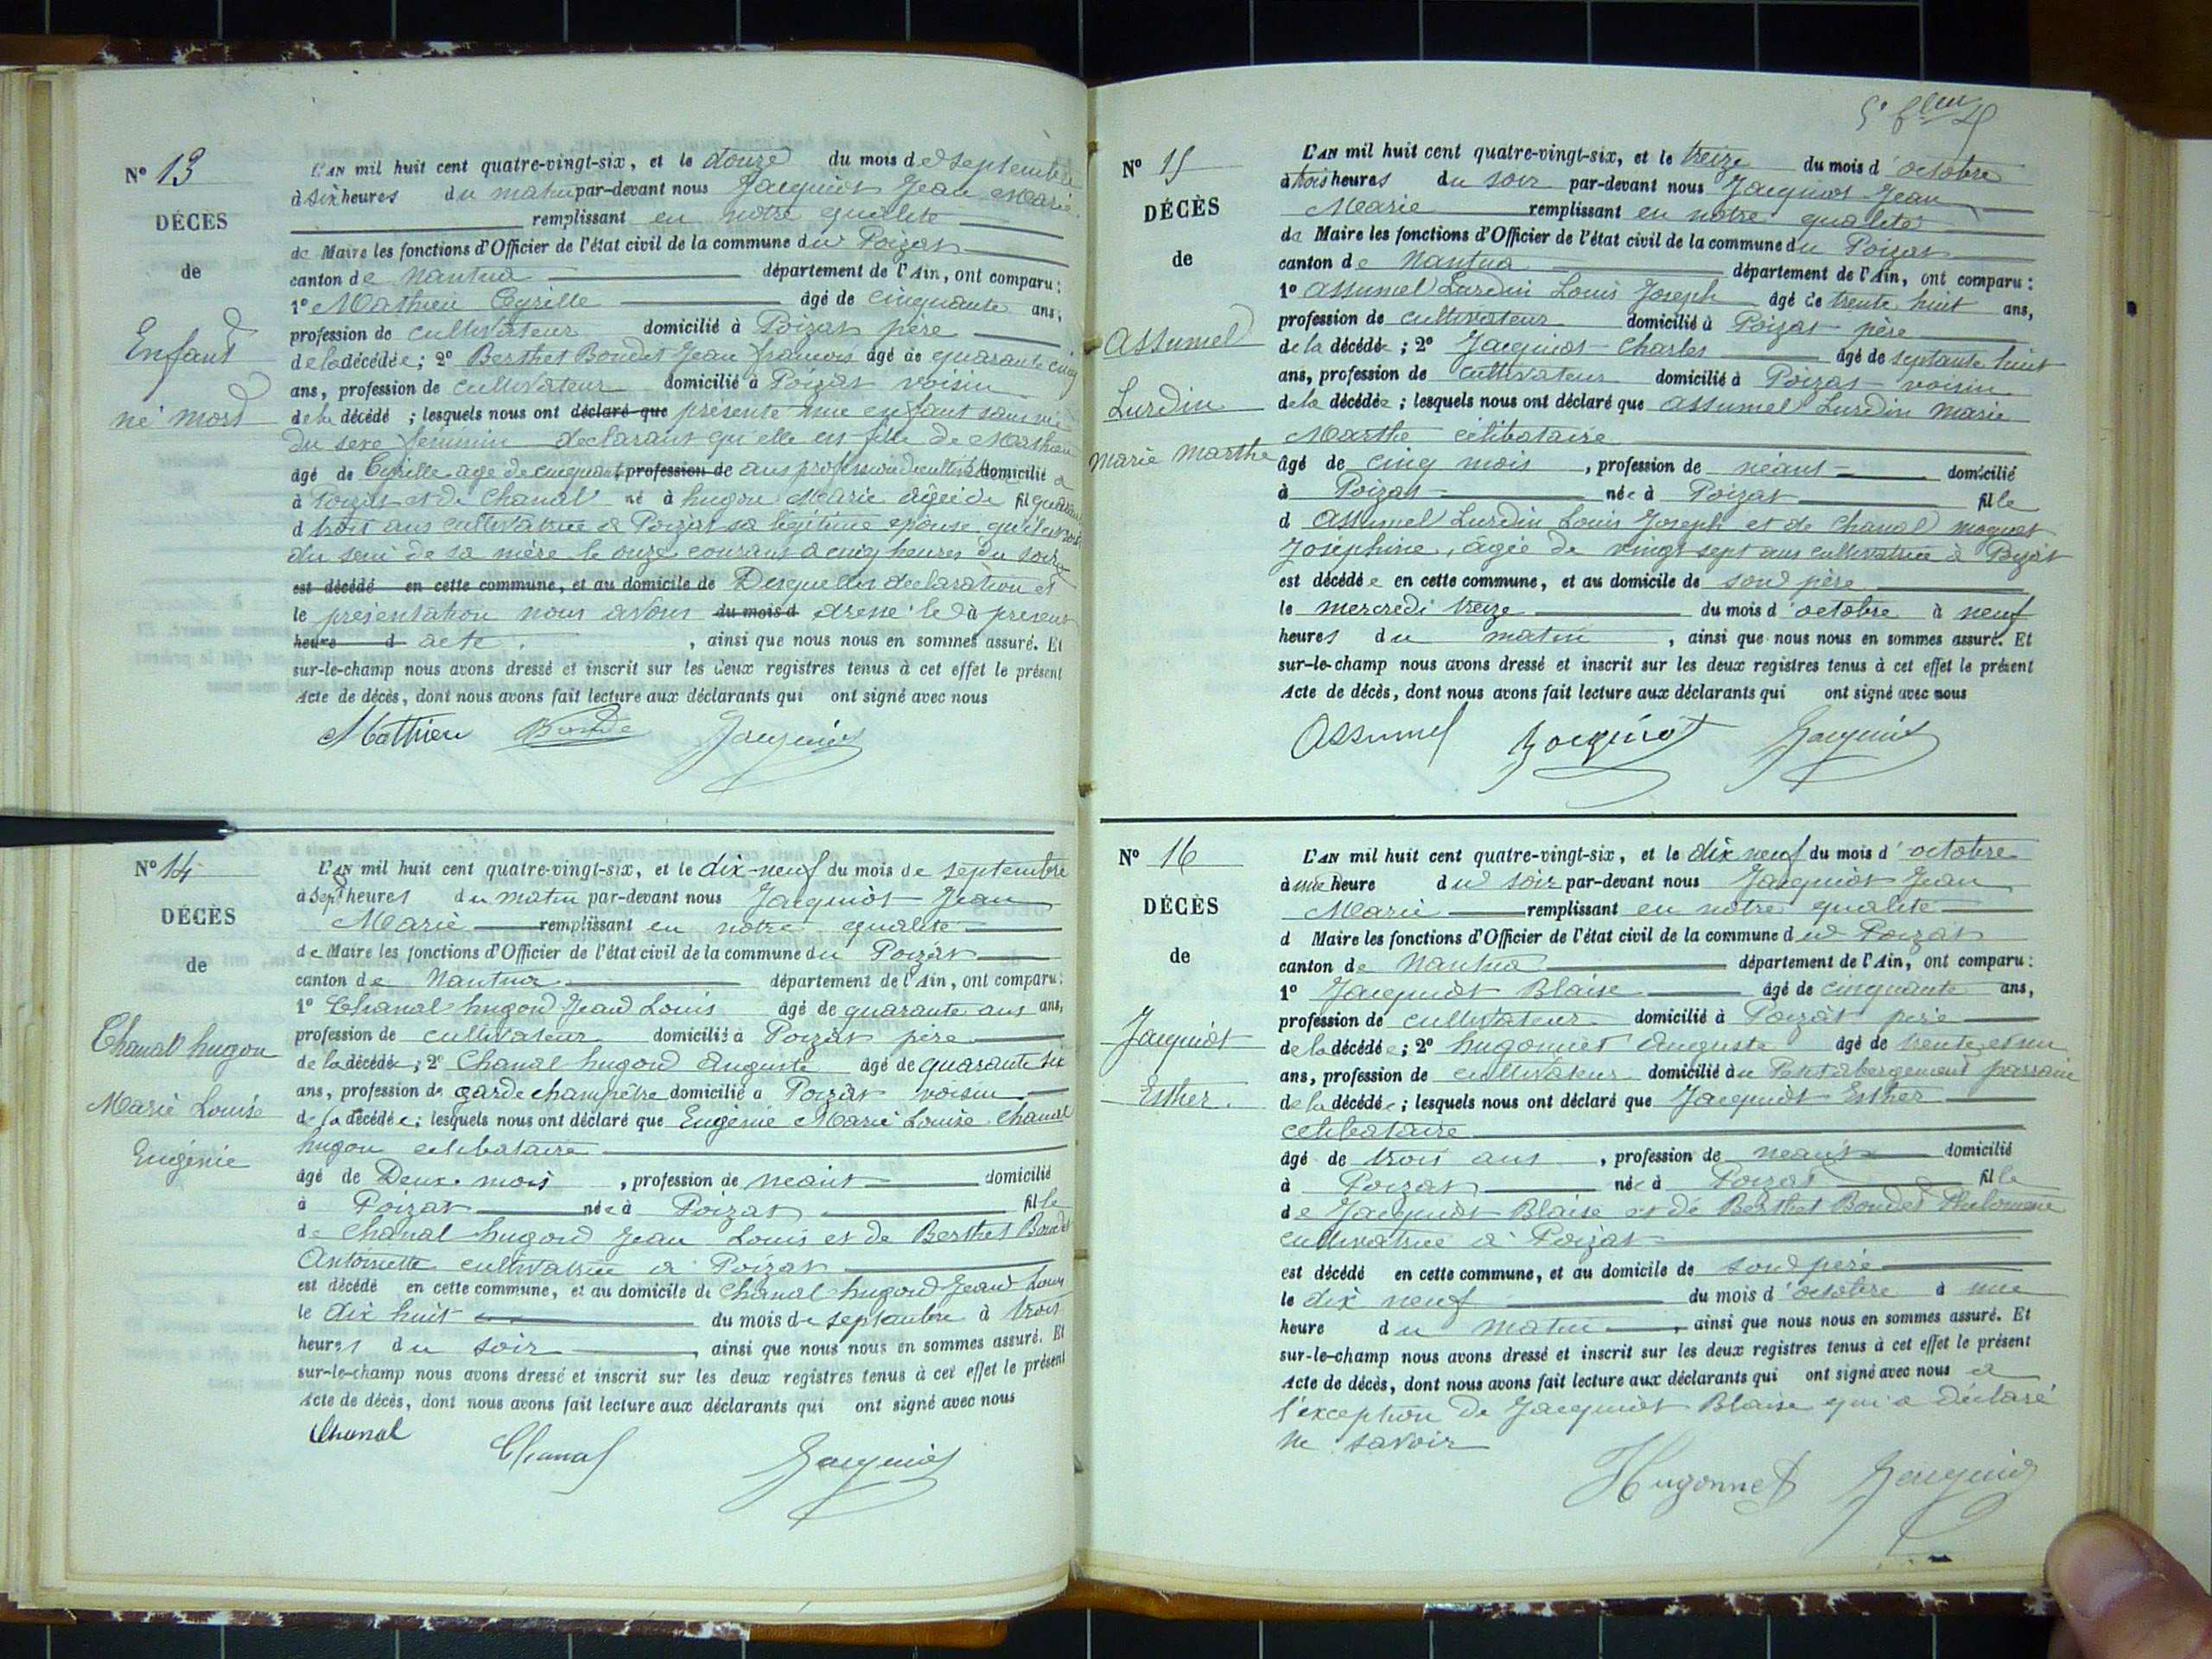 N° 13
DÉCÈS
de
Enfant
né mort
L'AN mil huit cent quatre-vingt-six, et le douze du mois de septembre
à six heures du matin par-devant nous Jacquiot Jean Marie
remplissant en notre qualité
de Maire les fonctions d'Officier de l'état civil de la commune du Poizat
canton de Nantua département de l'Ain, ont comparu :
1° Mathieu Cyrille âgé de cinquante ans,
profession de cultivateur domicilié à Poizat père
de la décédée ; 2° Berthet Bondet Jean françois âgé de quarante cinq
ans, profession de cultivateur domicilié à Poizat voisin
de la décédé ; lesquels nous ont déclaré que présenté une enfant sans vie
du sexe féminin declarant qu'elle est fille de Mathieu
âgé de Cyrille age de cinquante profession de ans profession de cultivateur domicilié
à Poizat et de Chanal né à hugon Marie âgée de fil quarante
d trois ans cultivatrice à Poizat sa légitime épouse, qu'il est sorti
du sein de sa mère le onze courant à cinq heures du soir
est décédé en cette commune, et au domicile de Desquelles declaration et
le présentation nous avons du mois d dressé le à présent
heure d acte. , ainsi que nous nous en sommes assuré. Et
sur-le-champ nous avons dressé et inscrit sur les deux registres tenus à cet effet le présent
Acte de décès, dont nous avons fait lecture aux déclarants qui ont signé avec nous
Mathieu Bondet Jacquiot
N° 14
DÉCÈS
de
Chanal hugon
Marie Louise
Eugénie
L'AN mil huit cent quatre-vingt-six, et le dix-neuf du mois de septembre
à sept heures du matin par-devant nous Jacquiot Jean
Marie remplissant en notre qualité
de Maire les fonctions d'Officier de l'état civil de la commune du Poizat
canton de Nantua département de l'Ain, ont comparu :
1° Chanal hugon Jean Louis âgé de quarante ans ans,
profession de cultivateur domicilié à Poizat père
de la décédée ; 2° Chanal hugon Auguste âgé de quarante six
ans, profession de garde champêtre domicilié à Poizat voisin
de la décédée ; lesquels nous ont déclaré que Eugénie Marie Louise Chanal
hugon celibataire
âgé de Deux mois , profession de néant domicilié
à Poizat née à Poizat fille
de Chanal hugon Jean Louis et de Berthet Bondet
Antoinette cultivatrice à Poizat
est décédé en cette commune, et au domicile de Chanal hugon Jean Louis
le dix huit du mois de septembre à trois
heures du soir , ainsi que nous nous en sommes assuré. Et
sur-le-champ nous avons dressé et inscrit sur les deux registres tenus à cet effet le présent
Acte de décès, dont nous avons fait lecture aux déclarants qui ont signé avec nous
Chanal Chanal Jacquiot
N° 15
DÉCÈS
de
Assumel
Lurdin
Marie Marthe
L'AN mil huit cent quatre-vingt-six, et le treize du mois d'octobre
à trois heures du soir par-devant nous Jacquiot Jean
Marie remplissant en notre qualité
de Maire les fonctions d'Officier de l'état civil de la commune du Poizat
canton de Nantua département de l'Ain, ont comparu :
1° Assumel Lurdin Louis Joseph âgé de trente huit ans,
profession de cultivateur domicilié à Poizat père
de la décédée ; 2° Jacquiot Charles âgé de septante huit
ans, profession de cultivateur domicilié à Poizat voisin
de la décédée ; lesquels nous ont déclaré que Assumel Lurdin Marie
Marthe célibataire
âgé de cinq mois , profession de néant domicilié
à Poizat née à Poizat fille
d Assumel Lurdin Louis Joseph et de Chanal moguet
Joséphine, âgée de vingt sept ans cultivatrice à Poizat
est décédée en cette commune, et au domicile de son père
le mercredi treize du mois d'octobre à neuf
heures du matin , ainsi que nous nous en sommes assuré. Et
sur-le-champ nous avons dressé et inscrit sur les deux registres tenus à cet effet le présent
Acte de décès, dont nous avons fait lecture aux déclarants qui ont signé avec nous
Assumel Jacquiot Jacquiot
N° 16
DÉCÈS
de
Jacquiot
Esther.
L'AN mil huit cent quatre-vingt-six, et le dix neuf du mois d'octobre
à une heure du soir par-devant nous Jacquiot Jean
Marie remplissant en notre qualité
d Maire les fonctions d'Officier de l'état civil de la commune du Poizat
canton de Nantua département de l'Ain, ont comparu :
1° Jacquiot Blaise âgé de cinquante ans,
profession de cultivateur domicilié à Poizat père
de la décédée ; 2° hugonnet Auguste âgé de trente et un
ans, profession de cultivateur domicilié au Petit abergement parrain
de la décédée ; lesquels nous ont déclaré que Jacquiot Esther
celibataire
âgé de trois ans , profession de néant domicilié
à Poizat née à Poizat fille
de Jacquiot Blaise et de Berthet Bondet Philomene
cultivatrice à Poizat
est décédé en cette commune, et au domicile de son père
le dix neuf du mois d'octobre à une
heure du matin , ainsi que nous nous en sommes assuré. Et
sur-le-champ nous avons dressé et inscrit sur les deux registres tenus à cet effet le présent
Acte de décès, dont nous avons fait lecture aux déclarants qui ont signé avec nous à
l'exception de Jacquiot Blaise qui a déclaré
ne savoir
Hugonnet Jacquiot